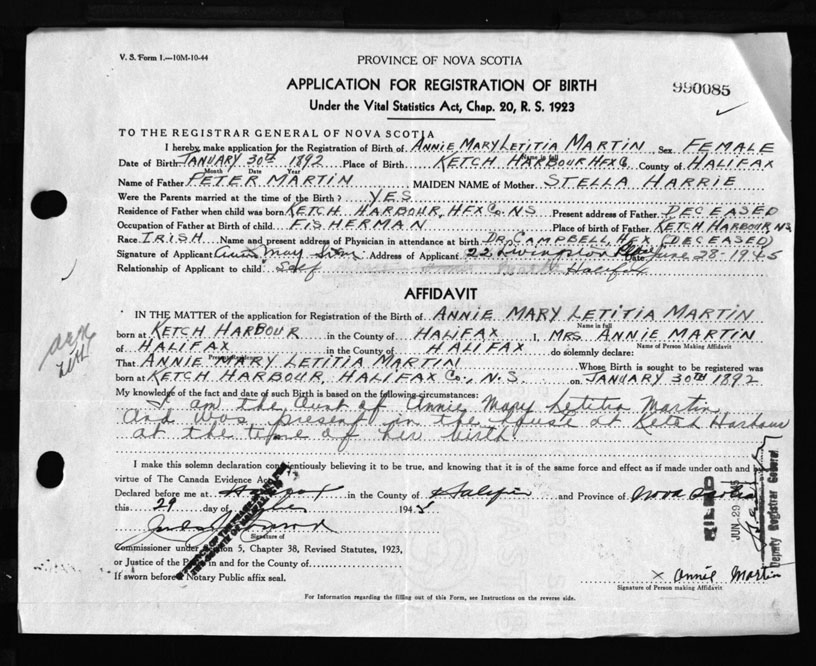 V. S. Form 1.—10M-10-44
PROVINCE OF NOVA SCOTIA
APPLICATION FOR REGISTRATION OF BIRTH
990085
Under the Vital Statistics Act, Chap. 20, R. S. 1923
TO THE REGISTRAR GENERAL OF NOVA SCOTIA
I hereby make application for the Registration of Birth of ANNIE MARY LETITIA MARTIN Sex FEMALE
Name in full
Date of Birth JANUARY 30TH 1892 Place of Birth KETCH HARBOUR HFX Co. County of HALIFAX
Month Date Year
Name of Father PETER MARTIN MAIDEN NAME of Mother STELLA HARRIE
Were the Parents married at the time of the Birth? YES
Residence of Father when child was born KETCH HARBOUR, HFX Co. NS Present address of Father DECEASED
Occupation of Father at Birth of child FISHERMAN Place of birth of Father KETCH HARBOUR NS
Race IRISH Name and present address of Physician in attendance at birth DR. CAMPBELL, HFX (DECEASED)
Signature of Applicant Annie May Address of Applicant 22 Livingstone Place Date June 28-1945
Relationship of Applicant to child Self Halifax
AFFIDAVIT
IN THE MATTER of the application for Registration of the Birth of ANNIE MARY LETITIA MARTIN
Name in full
born at KETCH HARBOUR in the County of HALIFAX I, MRS ANNIE MARTIN
Name of Person Making Affidavit
of HALIFAX in the County of HALIFAX do solemnly declare:
That ANNIE MARY LETITIA MARTIN Whose Birth is sought to be registered was
born at KETCH HARBOUR, HALIFAX Co., N.S. on JANUARY 30TH 1892
My knowledge of the fact and date of such Birth is based on the following circumstances:
I am the Aunt of Annie Mary Letitia Martin
and was present in the house at Ketch Harbour
at the time of her birth
I make this solemn declaration conscientiously believing it to be true, and knowing that it is of the same force and effect as if made under oath and by
virtue of The Canada Evidence Act.
Declared before me at Halifax in the County of Halifax and Province of Nova Scotia
this 29 day of June 1945
Signature of
Commissioner under Section 5, Chapter 38, Revised Statutes, 1923,
or Justice of the Peace in and for the County of
If sworn before a Notary Public affix seal.
FILED
JUN 29 1945
Deputy Registrar General
x Annie Martin
Signature of Person making Affidavit
For Information regarding the filling out of this Form, see Instructions on the reverse side.